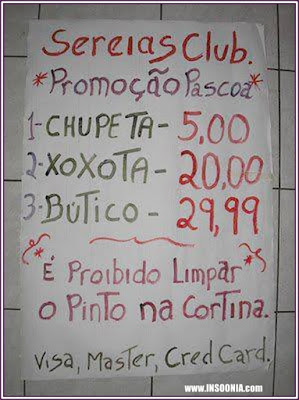 Sereias Club.
*Promoção Pascoa*
1-CHUPETA- 5,00
2-XOXOTA- 20,00
3-BÚTICO- 29,99
É Proibido Limpar
o Pinto na Cortina.
Visa, Master, Cred Card.
www.INSOONIA.com